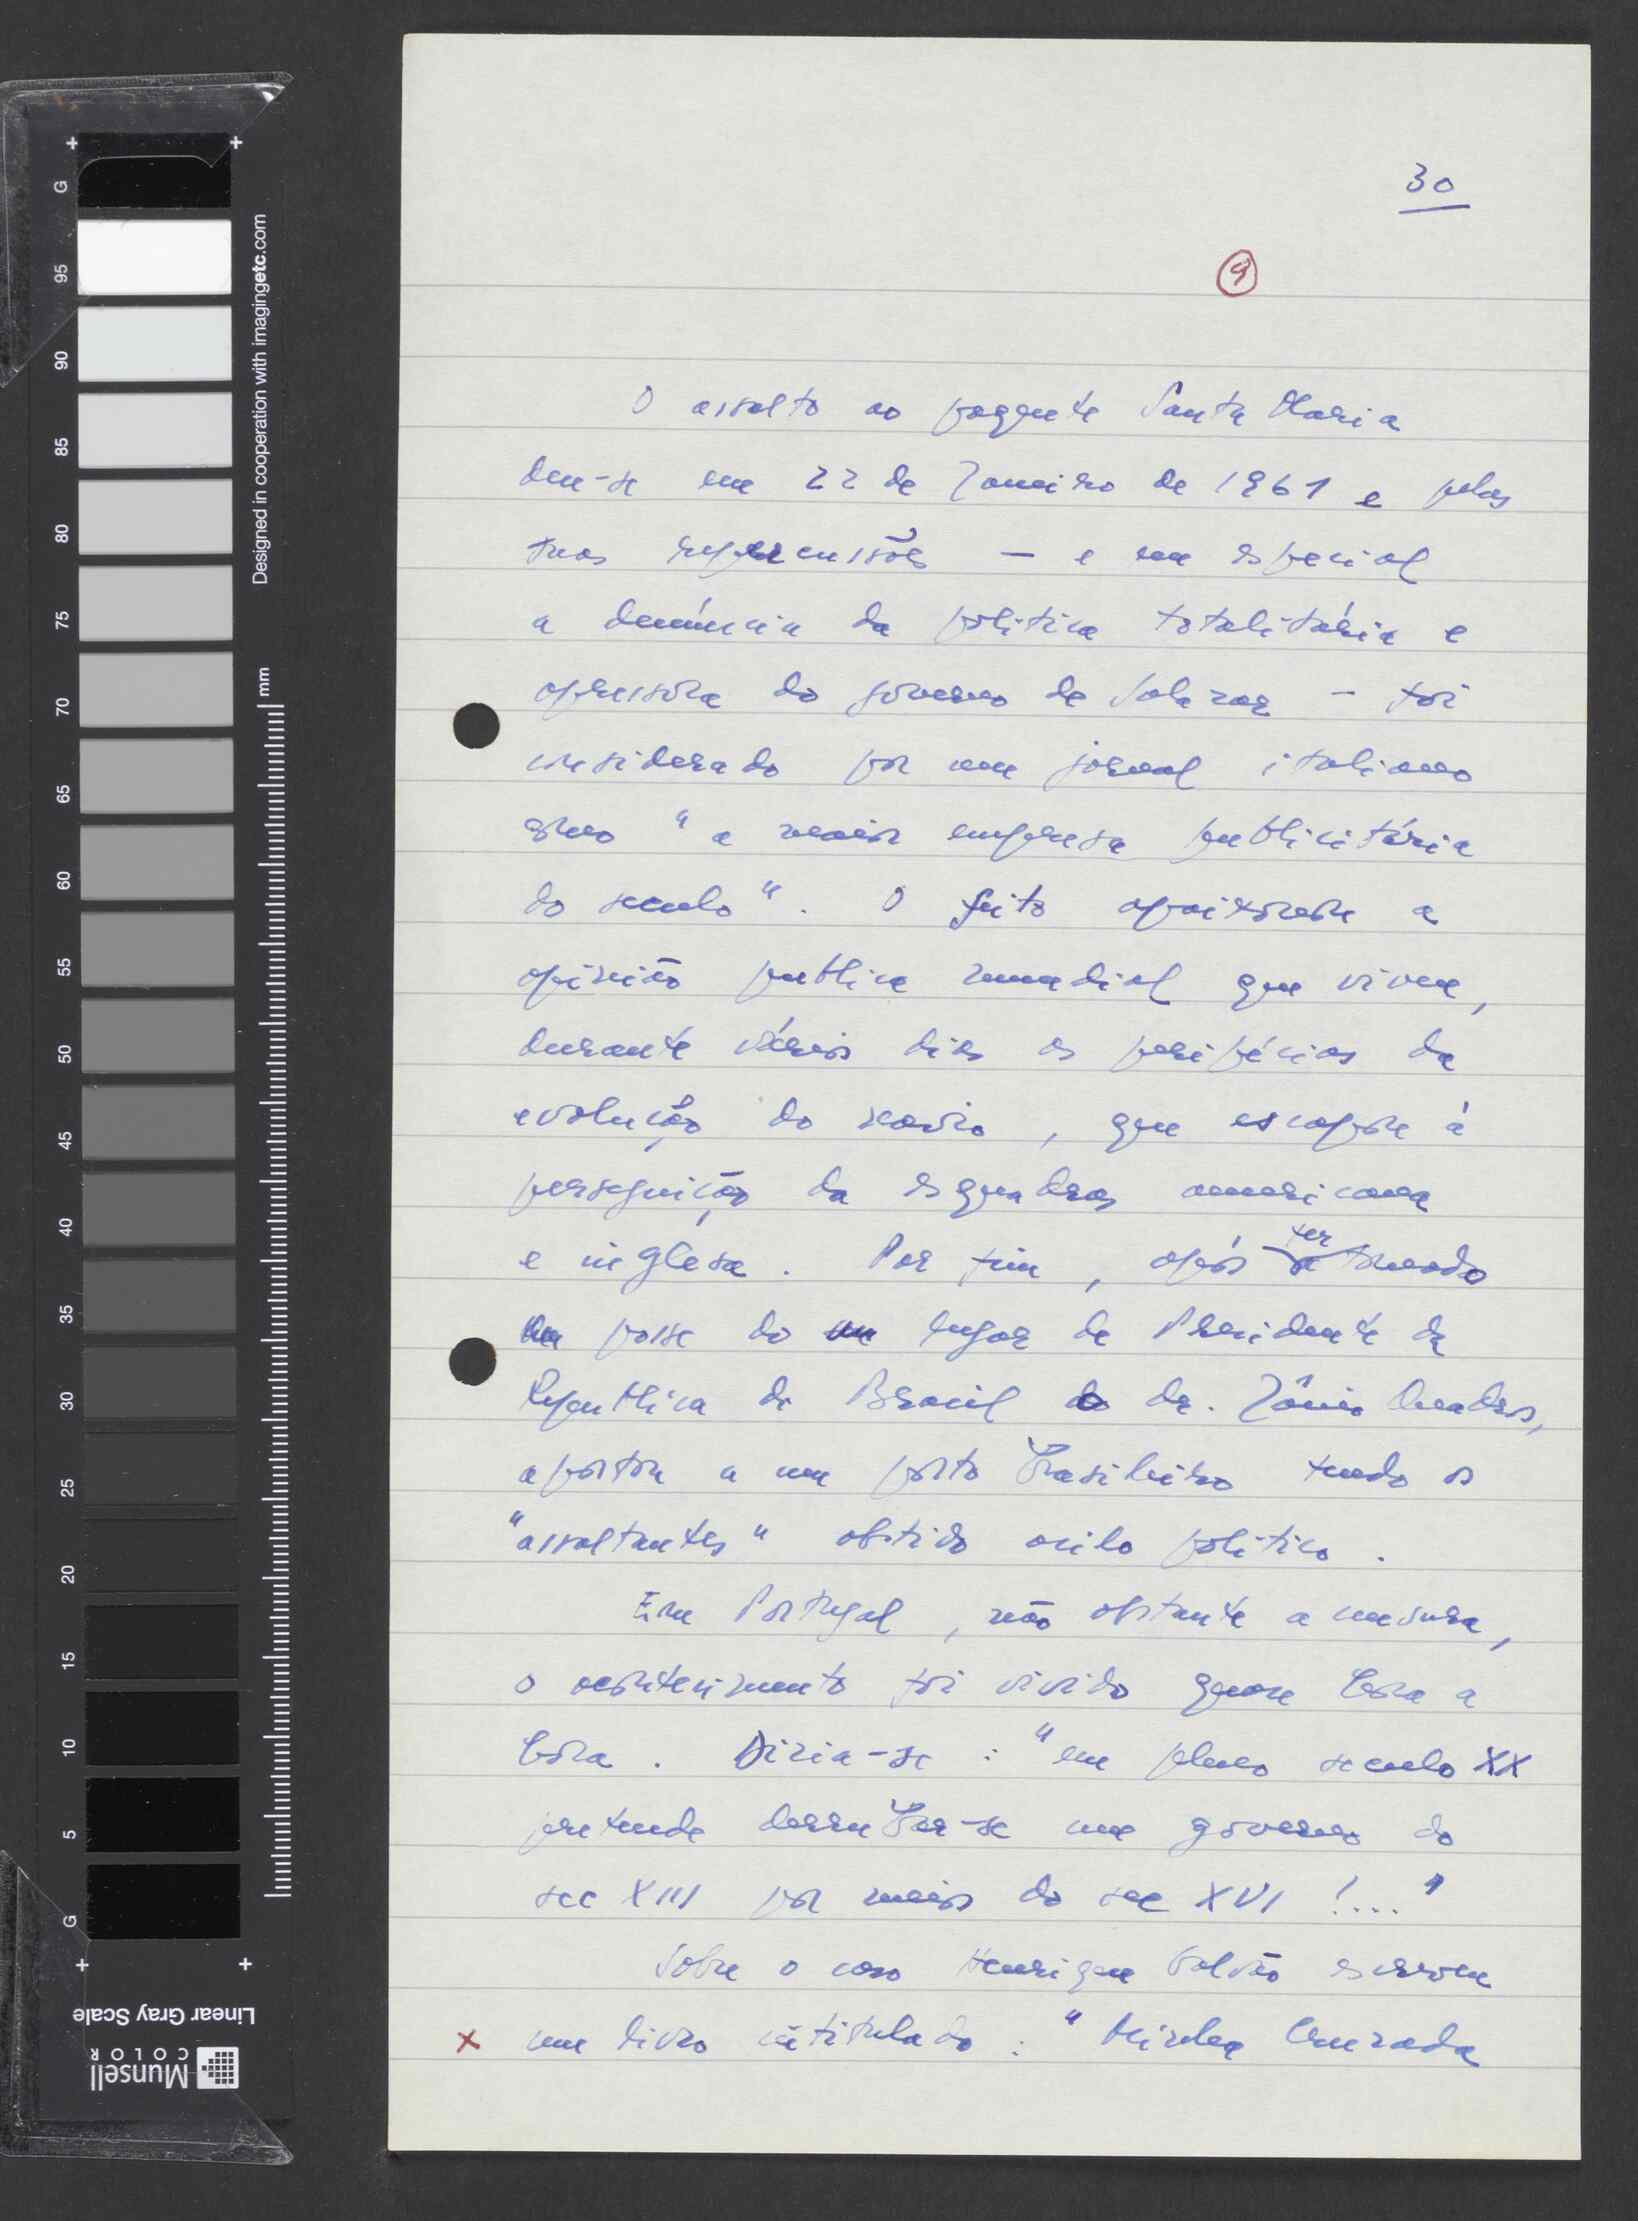 30
9
O assalto ao paquete Santa Maria
deu-se em 22 de Janeiro de 1961 e pelas
suas repercussões — e em especial
a denúncia da politica totalitária e
opressora do govêrno de Salazar — foi
considerado por um jornal italiano
como "a maior empresa publicitária
do seculo". O feito apaixonou a
opinião publica mundial que viveu,
durante vários dias as peripécias da
evolução do navio, que escapou à
perseguição da esquadras americana
e inglêsa. Por fim, após ter tomado
posse do lugar de Presidente da
Republica do Brasil o dr. Jânio Quadros,
aportou a um porto brasileiro tendo os
"assaltantes" obtido asilo politico.
Em Portugal, não obstante a censura,
o acontecimento foi vivido quase hora a
hora. Dizia-se: "em pleno seculo XX
pretende derrubar-se um governo do
sec XIII por meios do sec XVI !...."
Sobre o caso Henrique Galvão escreveu
x um livro intitulado: "Minha Cruzada
G
95
90
85
80
75
70
65
60
55
50
45
40
35
30
25
20
15
10
5
G
Designed in cooperation with imagingetc.com
mm
Linear Gray Scale
Munsell
COLOR